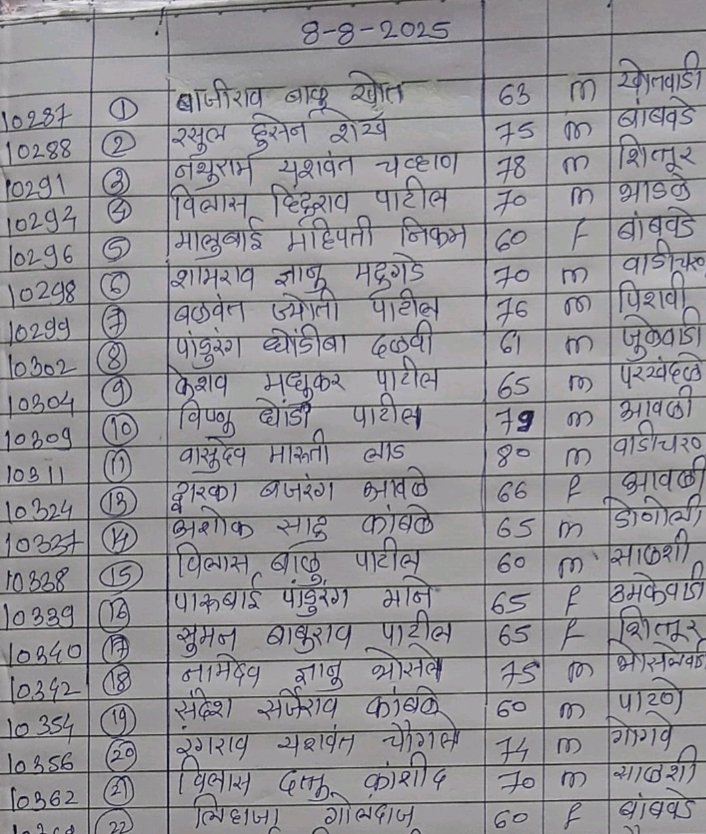 8-8-2025
10287 ① बाजीराव बाळू खोत 63 m खोतवाडी
10288 ② रसुल हुसेन शेख 75 m बांबवडे
10291 ③ नथुराम यशवंत चव्हाण 78 m शित्तूर
10292 ④ विलास हिंदुराव पाटील 70 m भाडळे
10296 ⑤ मालुबाई महिपती निकम 60 f बांबवडे
10298 ⑥ शामराव ज्ञानू मदुगडे 70 m वाडीचरण
10299 ⑦ बळवंत ज्योती पाटील 76 m पिशवी
10302 ⑧ पांडुरंग धोंडीबा दळवी 61 m जुळेवाडी
10304 ⑨ केशव मधुकर पाटील 65 m परखंदळे
10309 ⑩ विष्णू धोंडी पाटील 79 m आवळी
10311 ⑪ वासुदेव मारुती लाड 80 m वाडीचरण
10324 ⑬ द्वारका बजरंग आवळे 66 f आवळी
10327 ⑭ अशोक साधू कांबळे 65 m डोणोली
10338 ⑮ विलास बाळू पाटील 60 m साळशी
10339 ⑯ पारुबाई पांडुरंग माने 65 f ठमकेवाडी
10340 ⑰ सुमन बाबुराव पाटील 65 f शित्तूर
10342 ⑱ नामदेव ज्ञानू भोसले 75 m भोसलेवाडी
10354 ⑲ संदेश सर्जेराव कांबळे 60 m पाटणे
10356 ⑳ रंगराव यशवंत चौगले 74 m गोगवे
10362 ㉑ विलास दत्तू काशीद 70 m साळशी
㉒ गोलंदाज 60 f बांबवडे